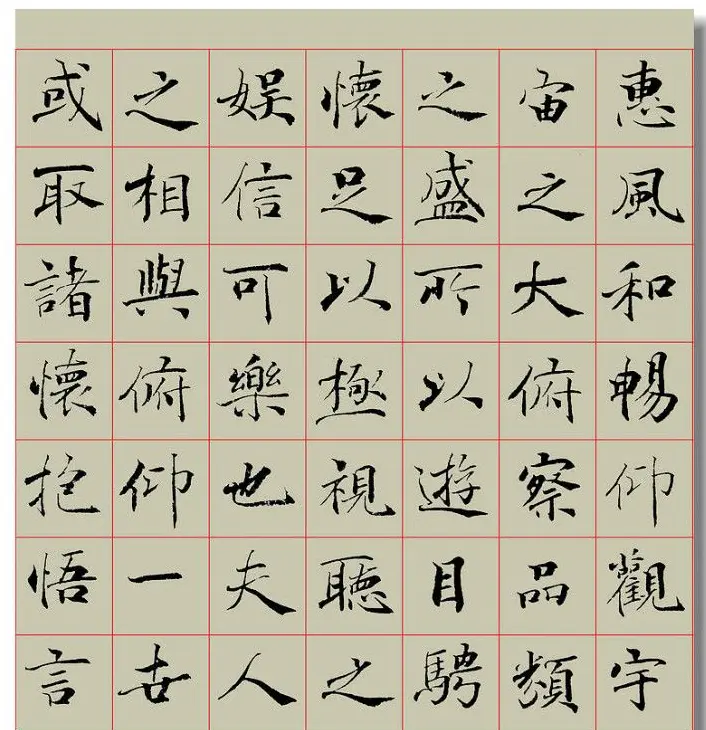 惠風和暢仰觀宇
宙之大俯察品類
之盛所以遊目騁
懷足以極視聽之
娛信可樂也夫人
之相與俯仰一世
或取諸懷抱悟言